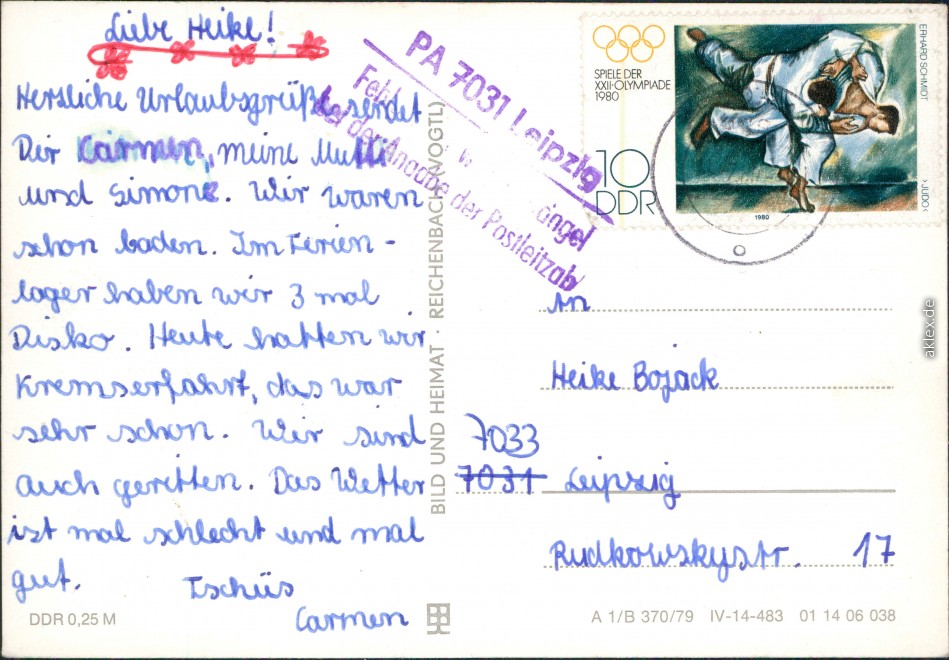 Liebe Heike!
Herzliche Urlaubsgrüße sendet
Dir Carmen, meine Mutti
und Simone. Wir waren
schon baden. Im Ferien-
lager haben wir 3 mal
Disko. Heute hatten wir
Kremserfahrt, das war
sehr schön. Wir sind
auch geritten. Das Wetter
ist mal schlecht und mal
gut.
Tschüs
Carmen
DDR 0,25 M
BILD UND HEIMAT · REICHENBACH (VOGTL)
PA 7031 Leipzig
bei der Angabe der Postleitzahl
SPIELE DER
XXII. OLYMPIADE
1980
10
DDR
ERHARD SCHMIDT
›JUDO‹
1980
An
Heike Bojack
7033
7031 Leipzig
Rudkowskystr. 17
A 1/B 370/79 IV-14-483 01 14 06 038
aklex.de